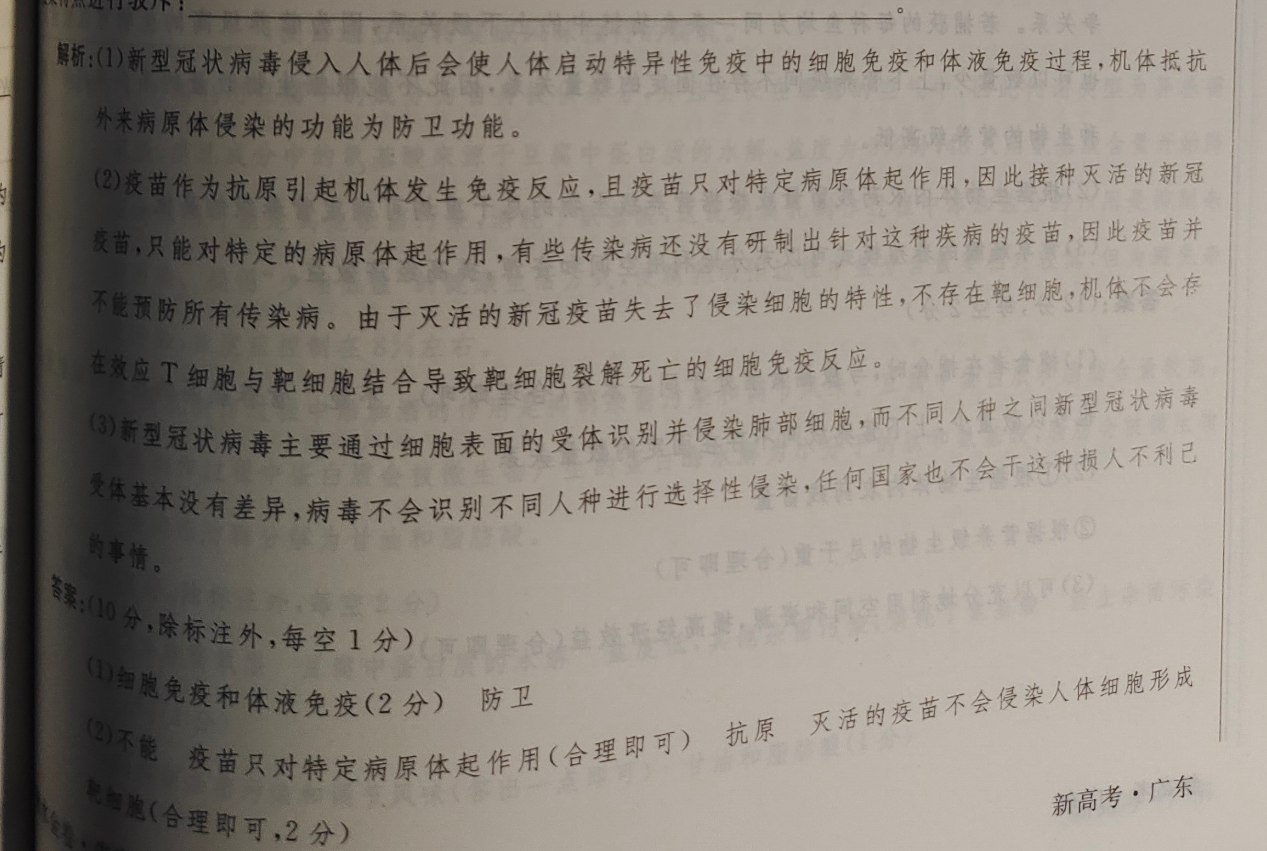 进行驳斥:。
解析:(1)新型冠状病毒侵入人体后会使人体启动特异性免疫中的细胞免疫和体液免疫过程,机体抵抗
外来病原体侵染的功能为防卫功能。
(2)疫苗作为抗原引起机体发生免疫反应,且疫苗只对特定病原体起作用,因此接种灭活的新冠
疫苗,只能对特定的病原体起作用,有些传染病还没有研制出针对这种疾病的疫苗,因此疫苗并
不能预防所有传染病。由于灭活的新冠疫苗失去了侵染细胞的特性,不存在靶细胞,机体不会存
在效应T细胞与靶细胞结合导致靶细胞裂解死亡的细胞免疫反应。
(3)新型冠状病毒主要通过细胞表面的受体识别并侵染肺部细胞,而不同人种之间新型冠状病毒
受体基本没有差异,病毒不会识别不同人种进行选择性侵染,任何国家也不会干这种损人不利己
的事情。
答案:(10分,除标注外,每空1分)
(1)细胞免疫和体液免疫(2分) 防卫
(2)不能 疫苗只对特定病原体起作用(合理即可) 抗原 灭活的疫苗不会侵染人体细胞形成
靶细胞(合理即可,2分)
新高考·广东